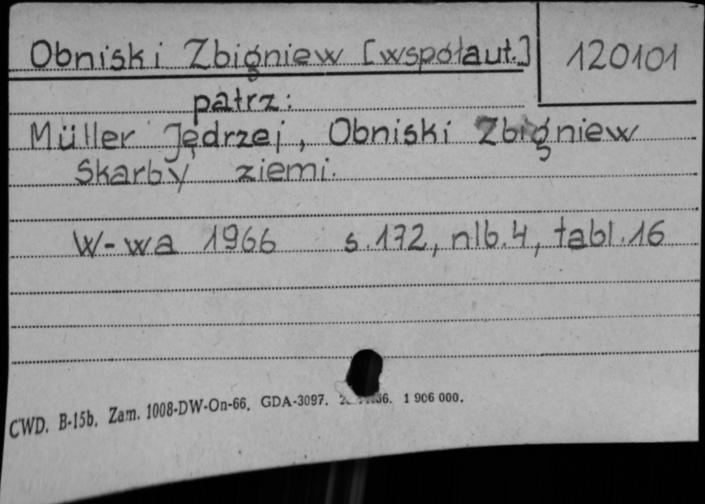 Obniski Zbigniew [współaut.] 120101
patrz:
Müller Jędrzej, Obniski Zbigniew
Skarby ziemi.
W-wa 1966 s.172, nlb.4, tabl.16
CWD. B-15b. Zam. 1008-DW-On-66. GDA-3097. 66. 1 906 000.